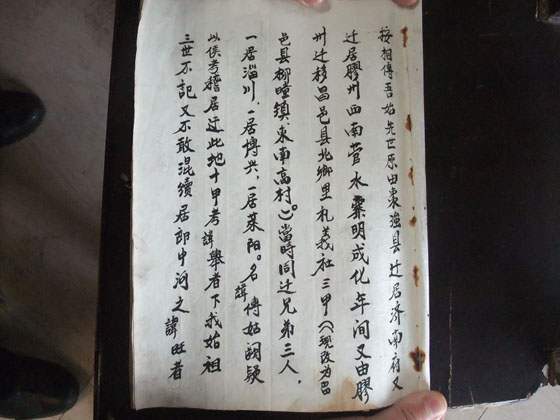 按相傳吾始先世原由棗強县迁居济南府又
迁居膠州西南菅水寨明成化年间又由膠
州迁移昌邑县北鄉里礼義社三甲(现改为昌
邑县柳疃鎮東南高村)。當時同迁兄弟三人,
一居淄川、一居博兴、一居莱阳。名諱傳始闕疑
以俟考稽居迁此地十甲考諱舉者下我始祖
三世不記又不敢混續居郎中沟之諱旺者